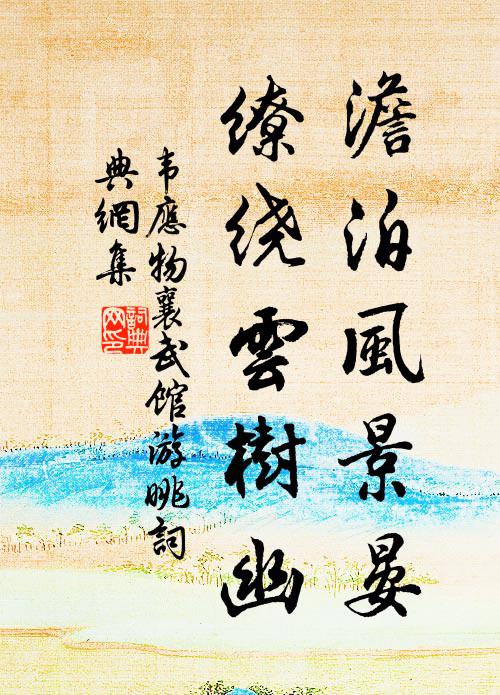 澹泊風景晏
缭绕雲樹幽
韦應物襄武馆游眺詞
典網集
詞典
网印